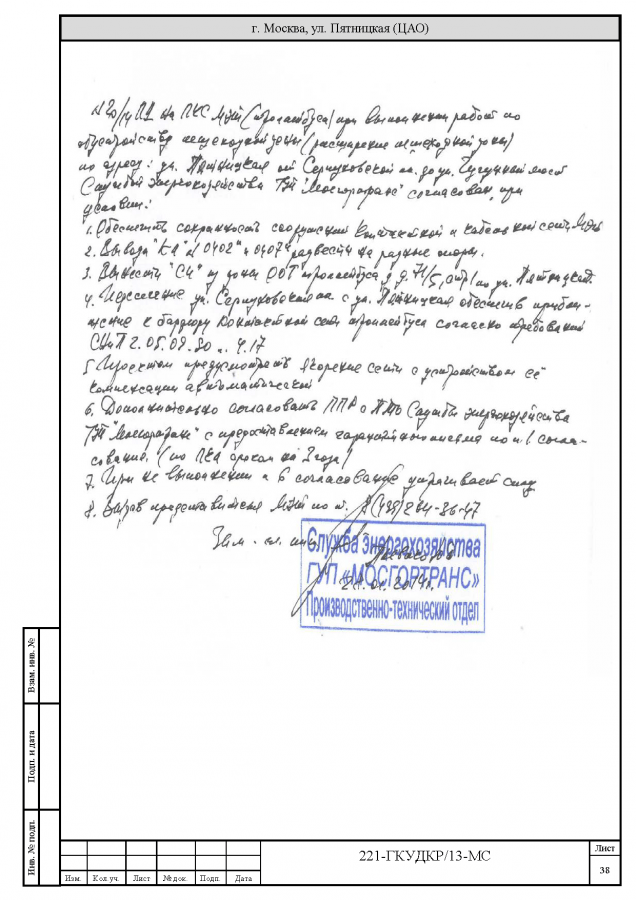 г. Москва, ул. Пятницкая (ЦАО)
при выполнении работ по
обустройству пешеходной зоны (расширение пешеходной зоны)
по адресу: ул. Пятницкая от Серпуховской пл. до ул. Чугунный мост
Служба Энергохозяйства "Мосгортранс" согласован, при
условии:
1. Обеспечить сохранность сооружений контактной и кабельной сети
2. Вывода "0402" и "0407" развести на разные опоры.
3. Вынести из зоны ООТ троллейбуса д. 71/5, стр 1 по ул. Пятницкая.
4. Пересечение ул. Серпуховской пл. с ул. Пятницкая обеспечив прибли-
жение к бордюру контактной сети троллейбуса согласно требований
СНиП 2.05.09.90
5. Проектом предусмотреть сети с устройством её
компенсации автоматической
6. Дополнительно согласовать ППР с ПТО Службы энергохозяйства
"Мосгортранс" с предоставлением гарантийного письма по п. 1 согла-
сования. (сроком на 2 года)
7. При не выполнении п 6 согласование утрачивает силу
8. Вызов представителя по т.
Зам.
Служба энергохозяйства
ГУП «МОСГОРТРАНС»
Производственно-технический отдел
Взам. инв. №
Подп. и дата
Инв. № подп.
Изм. Кол уч. Лист № док. Подп. Дата
221-ГКУДКР/13-МС
Лист
38